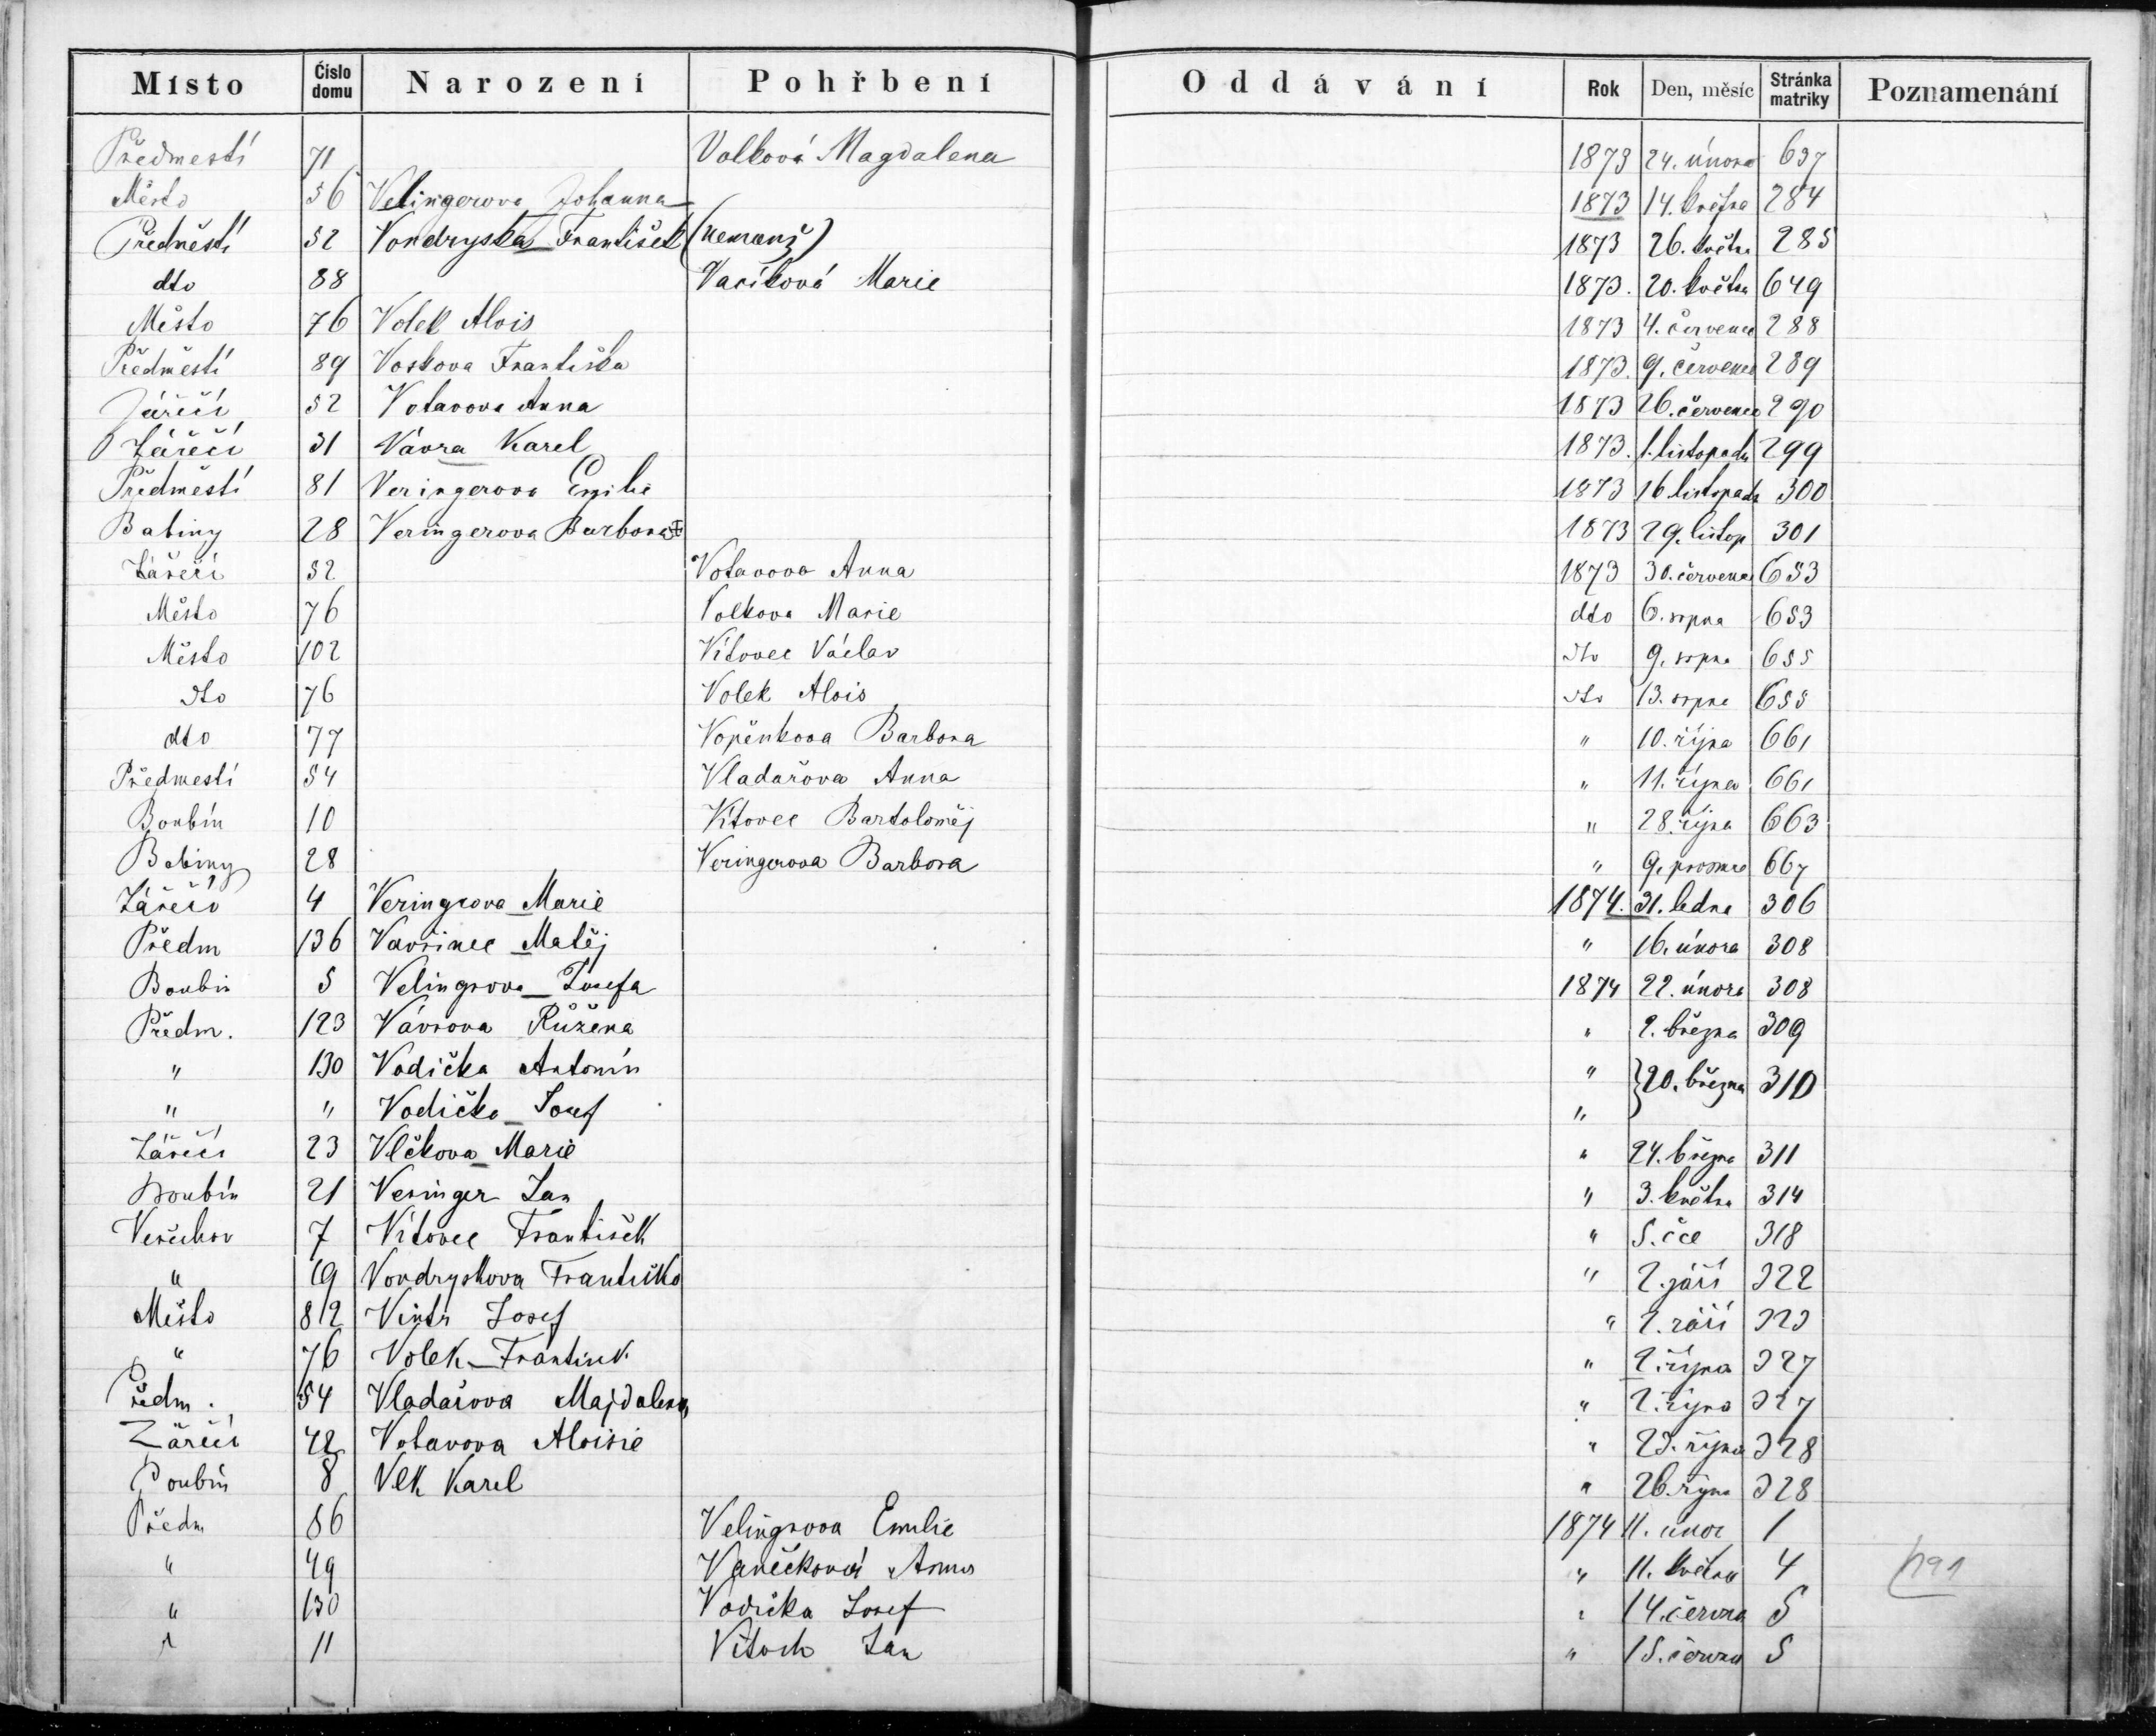 Místo Číslo domu Narození Pohřbení Oddávání Rok Den, měsíc Stránka matriky Poznamenání
Předmestí 71 Volková Magdalena 1873 24. února 637
Město 56 Velingerova Johanna 1873 14. května 284
Předměstí 52 Vondryska František (nemanž) 1873 26. květn 285
dto 88 Vacíková Marie 1873. 20. květn 649
Město 76 Volek Alois 1873 4. července 288
Předměstí 89 Voskova Františka 1873. 9. července 289
Záříčí 52 Votavova Anna 1873 26. července 290
Záříčí 31 Vávra Karel 1873. 1. listopadu 299
Předměstí 81 Veringerova Emilie 1873 16 listopadu 300
Babiny 28 Veringerova Barbora 1873 29. listop 301
Záříčí 52 Votavova Anna 1873 30. července 653
Město 76 Volkova Marie dto 6. srpna 653
Město 102 Vítovec Václav dto 9. srpna 655
dto 76 Volek Alois dto 13. srpna 655
dto 77 Vopěnkova Barbora " 10. října 661
Předmestí 54 Vladařova Anna " 11. října 661
Boubín 10 Vítovec Bartoloměj " 28. října 663
Babiny 28 Veringerova Barbora " 9. prosince 667
Záříčí 4 Veringrova Marie 1874. 31. ledna 306
Předm 136 Vavřinec Matěj " 16. února 308
Boubin 5 Velingrova Josefa 1874 22. února 308
Předm. 123 Vávrova Růžena " 2. března 309
" 130 Vodička Antonín " } 20. března 310
" " Vodička Josef "
Záříčí 23 Vlčkova Marie " 24. března 311
Boubín 21 Veringer Jan " 3. května 314
7 Vítovec František " 5. čce 318
" 19 Vondryskova Františka " 2. září 322
Město 82 Vintr Josef " 2. září 323
" 76 Volek František " 2. října 327
Předm. 54 Vladařova Majdalena " 2. října 327
Záříčí 42 Votavova Aloisie " 23. října 328
Boubín 8 Vlk Karel " 26. října 328
Předm 86 Velingrova Emilie 1874 11. únor 1
" 49 Vaněčková Anna " 11. května 4
" 130 Vodička Josef " 14. června 5
" 11 Vitoch Jan " 15. června 5